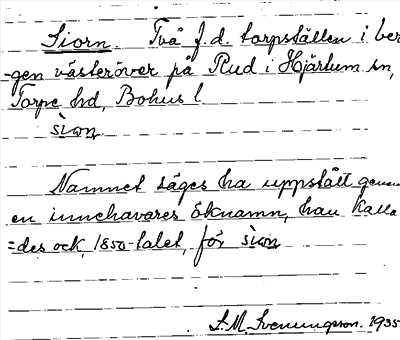 Siorn. Två f.d. torpställen i ber
-gen västeröver på Rud i Hjärtum sn,
Torpe hd, Bohus l
sìon
Namnet säges ha uppstått genom
en innehavares öknamn, han kalla
=des ock, 1850-talet, för sìon
S.M. Svenungsson. 1935